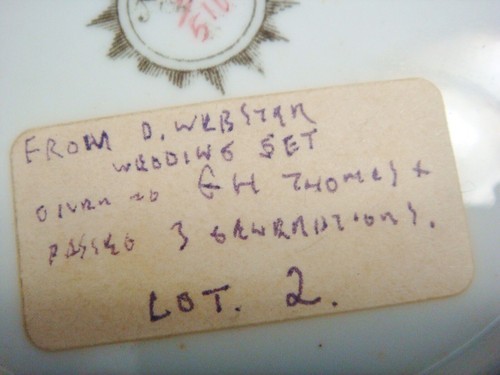 510
FROM D. WEBSTER
WEDDING SET
GIVEN TO G H THOMAS &
PASSED 3 GENERATIONS.
LOT. 2.